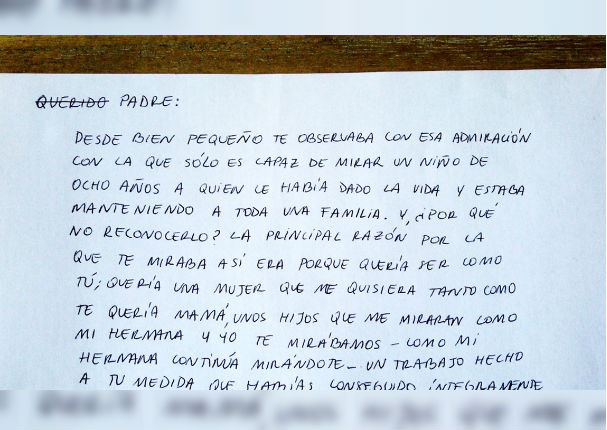 QUERIDO PADRE:
DESDE BIEN PEQUEÑO TE OBSERVABA CON ESA ADMIRACIÓN
CON LA QUE SÓLO ES CAPAZ DE MIRAR UN NIÑO DE
OCHO AÑOS A QUIEN LE HABÍA DADO LA VIDA Y ESTABA
MANTENIENDO A TODA UNA FAMILIA. Y, ¿POR QUÉ
NO RECONOCERLO? LA PRINCIPAL RAZÓN POR LA
QUE TE MIRABA ASÍ ERA PORQUE QUERÍA SER COMO
TÚ; QUERÍA UNA MUJER QUE ME QUISIERA TANTO COMO
TE QUERÍA MAMÁ, UNOS HIJOS QUE ME MIRARAN COMO
MI HERMANA Y YO TE MIRÁBAMOS - COMO MI
HERMANA CONTINÚA MIRÁNDOTE -. UN TRABAJO HECHO
A TU MEDIDA QUE HABÍAS CONSEGUIDO ÍNTEGRAMENTE